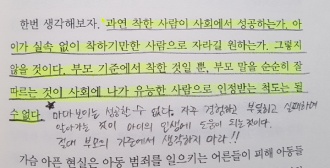 한번 생각해보자. 과연 착한 사람이 사회에서 성공하는가. 아
이가 실속 없이 착하기만한 사람으로 자라길 원하는가. 그렇지
않을 것이다. 부모 기준에서 착한 것일 뿐, 부모 말을 순순히 잘
따르는 것이 사회에 나가 유능한 사람으로 인정받는 척도는 될
수 없다. 마마보이는 성공할 수 없다. 자주 경험하고 부딪히고 실패하며
알아가는 것이 아이의 인생에 도움이 되는것이다.
절대 부모의 기준에서 생각하지 마라!!
가슴 아픈 현실은 아동 범죄를 일으키는 어른들이 피해 아동들